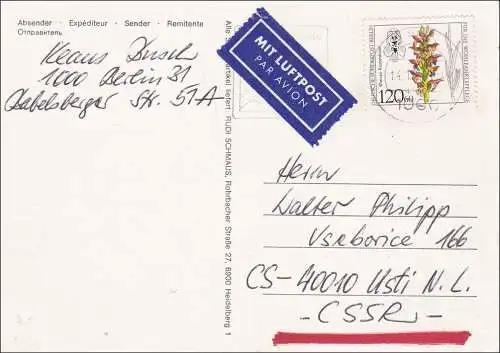 Absender · Expéditeur · Sender · Remitente
Отправитель
Klaus Busch
1000 Berlin 31
Babelsberger Str. 51A
MIT LUFTPOST
PAR AVION
120+60
RUDI SCHMAUS, Rohrbacher Straße 27, 6900 Heidelberg 1
Herrn
Walter Philipp
Vseborice 166
CS-40010 Usti N. L.
- CSSR -